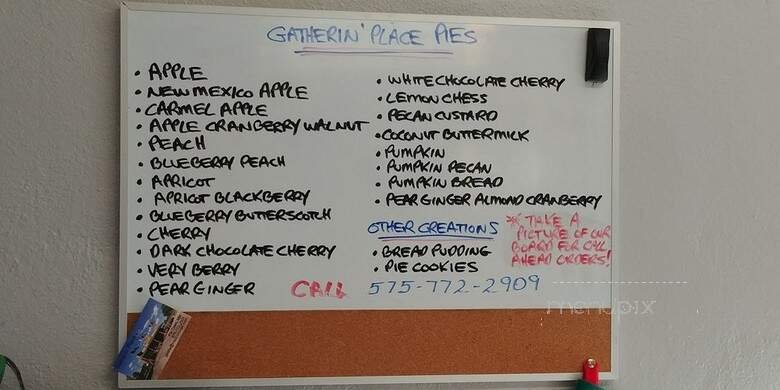 GATHERIN' PLACE PIES
• APPLE
• NEW MEXICO APPLE
• CARMEL APPLE
• APPLE CRANBERRY WALNUT
• PEACH
• BLUEBERRY PEACH
• APRICOT
• APRICOT BLACKBERRY
• BLUEBERRY BUTTERSCOTCH
• CHERRY
• DARK CHOCOLATE CHERRY
• VERY BERRY
• PEAR GINGER
• WHITE CHOCOLATE CHERRY
• LEMON CHESS
• PECAN CUSTARD
• COCONUT BUTTERMILK
• PUMPKIN
• PUMPKIN PECAN
• PUMPKIN BREAD
• PEAR GINGER ALMOND CRANBERRY
OTHER CREATIONS
• BREAD PUDDING
• PIE COOKIES
* TAKE A
PICTURE OF OUR
BOARD FOR CALL
AHEAD ORDERS!
CALL 575-772-2909
menupix